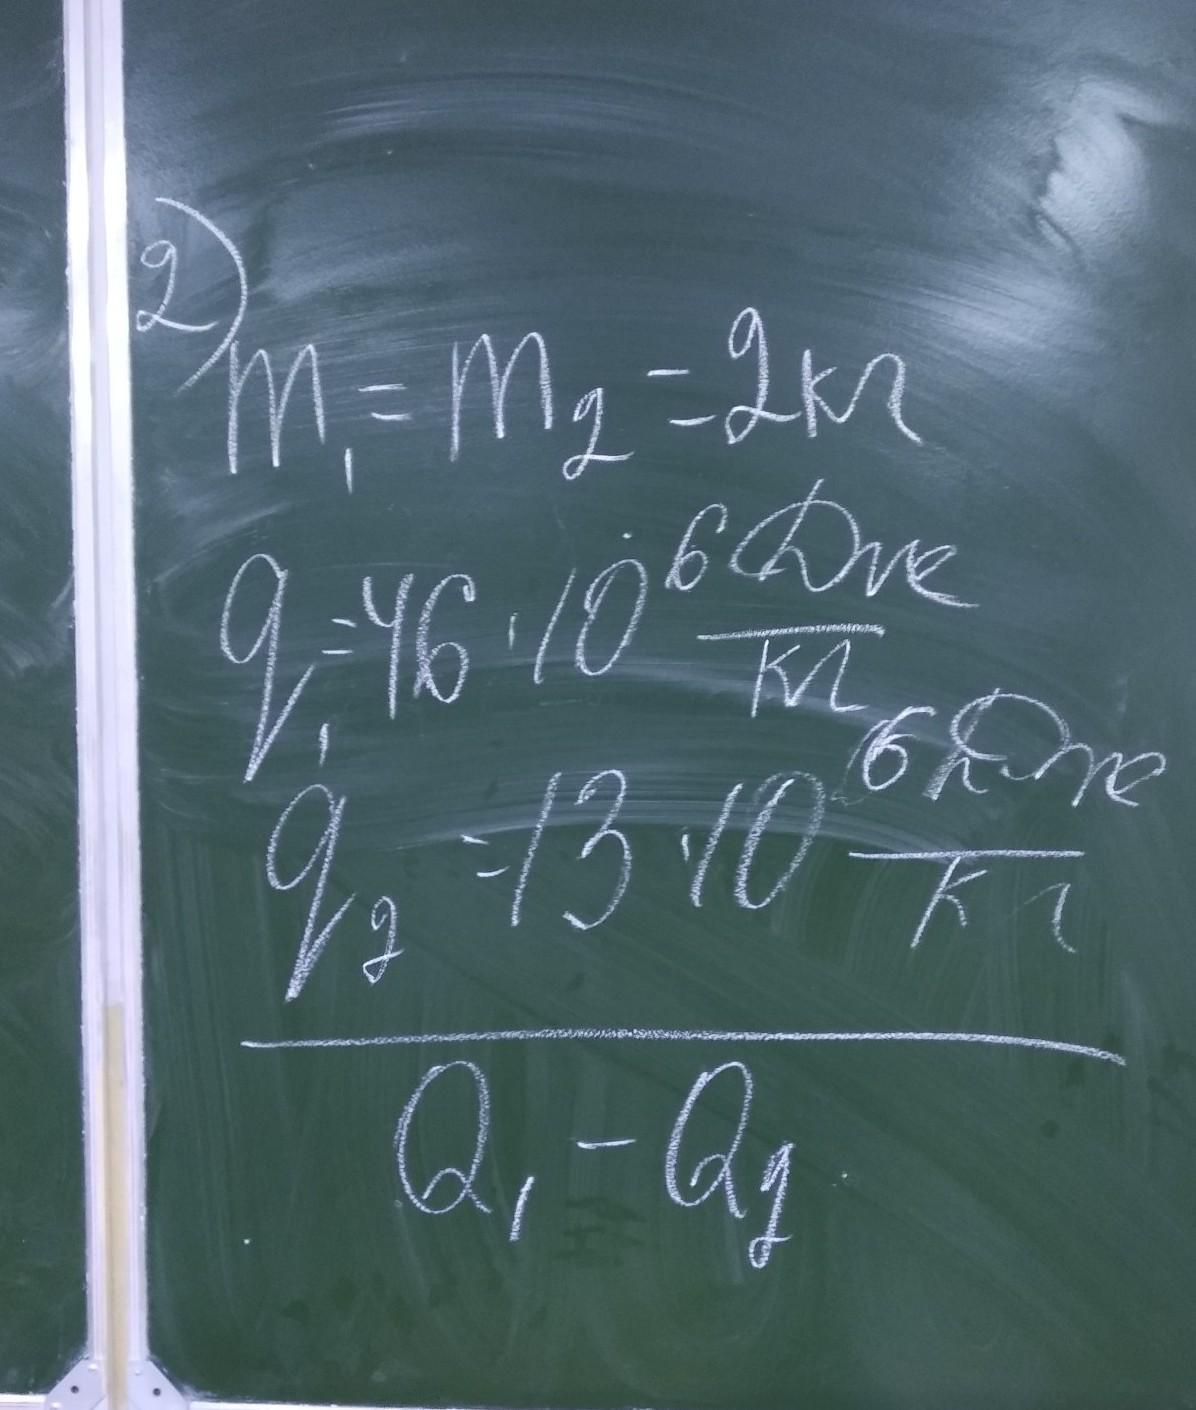 2)
m₁ = m₂ = 2кг
q₁ = 46 · 10⁶ Дж/кг
q₂ = 13 · 10⁶ Дж/кг
Q₁ − Q₂